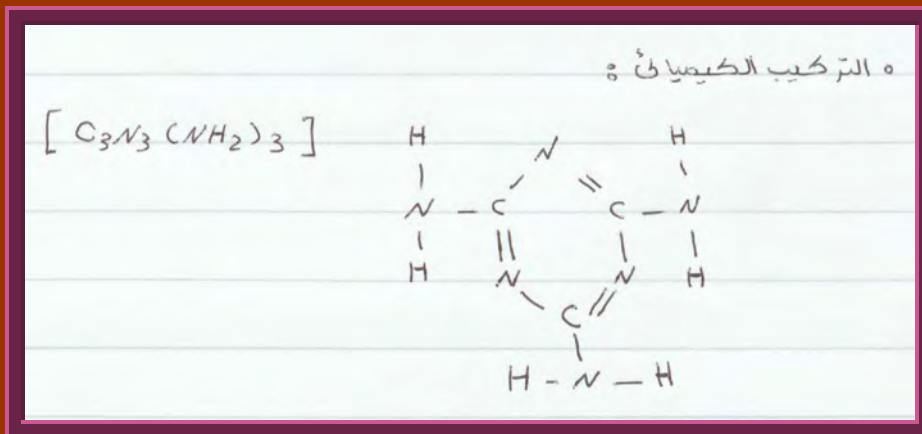 ° التركيب الكيميائى :
[ C3N3 (NH2)3 ]
H N H
N - C C - N
H N N H
C
H - N - H